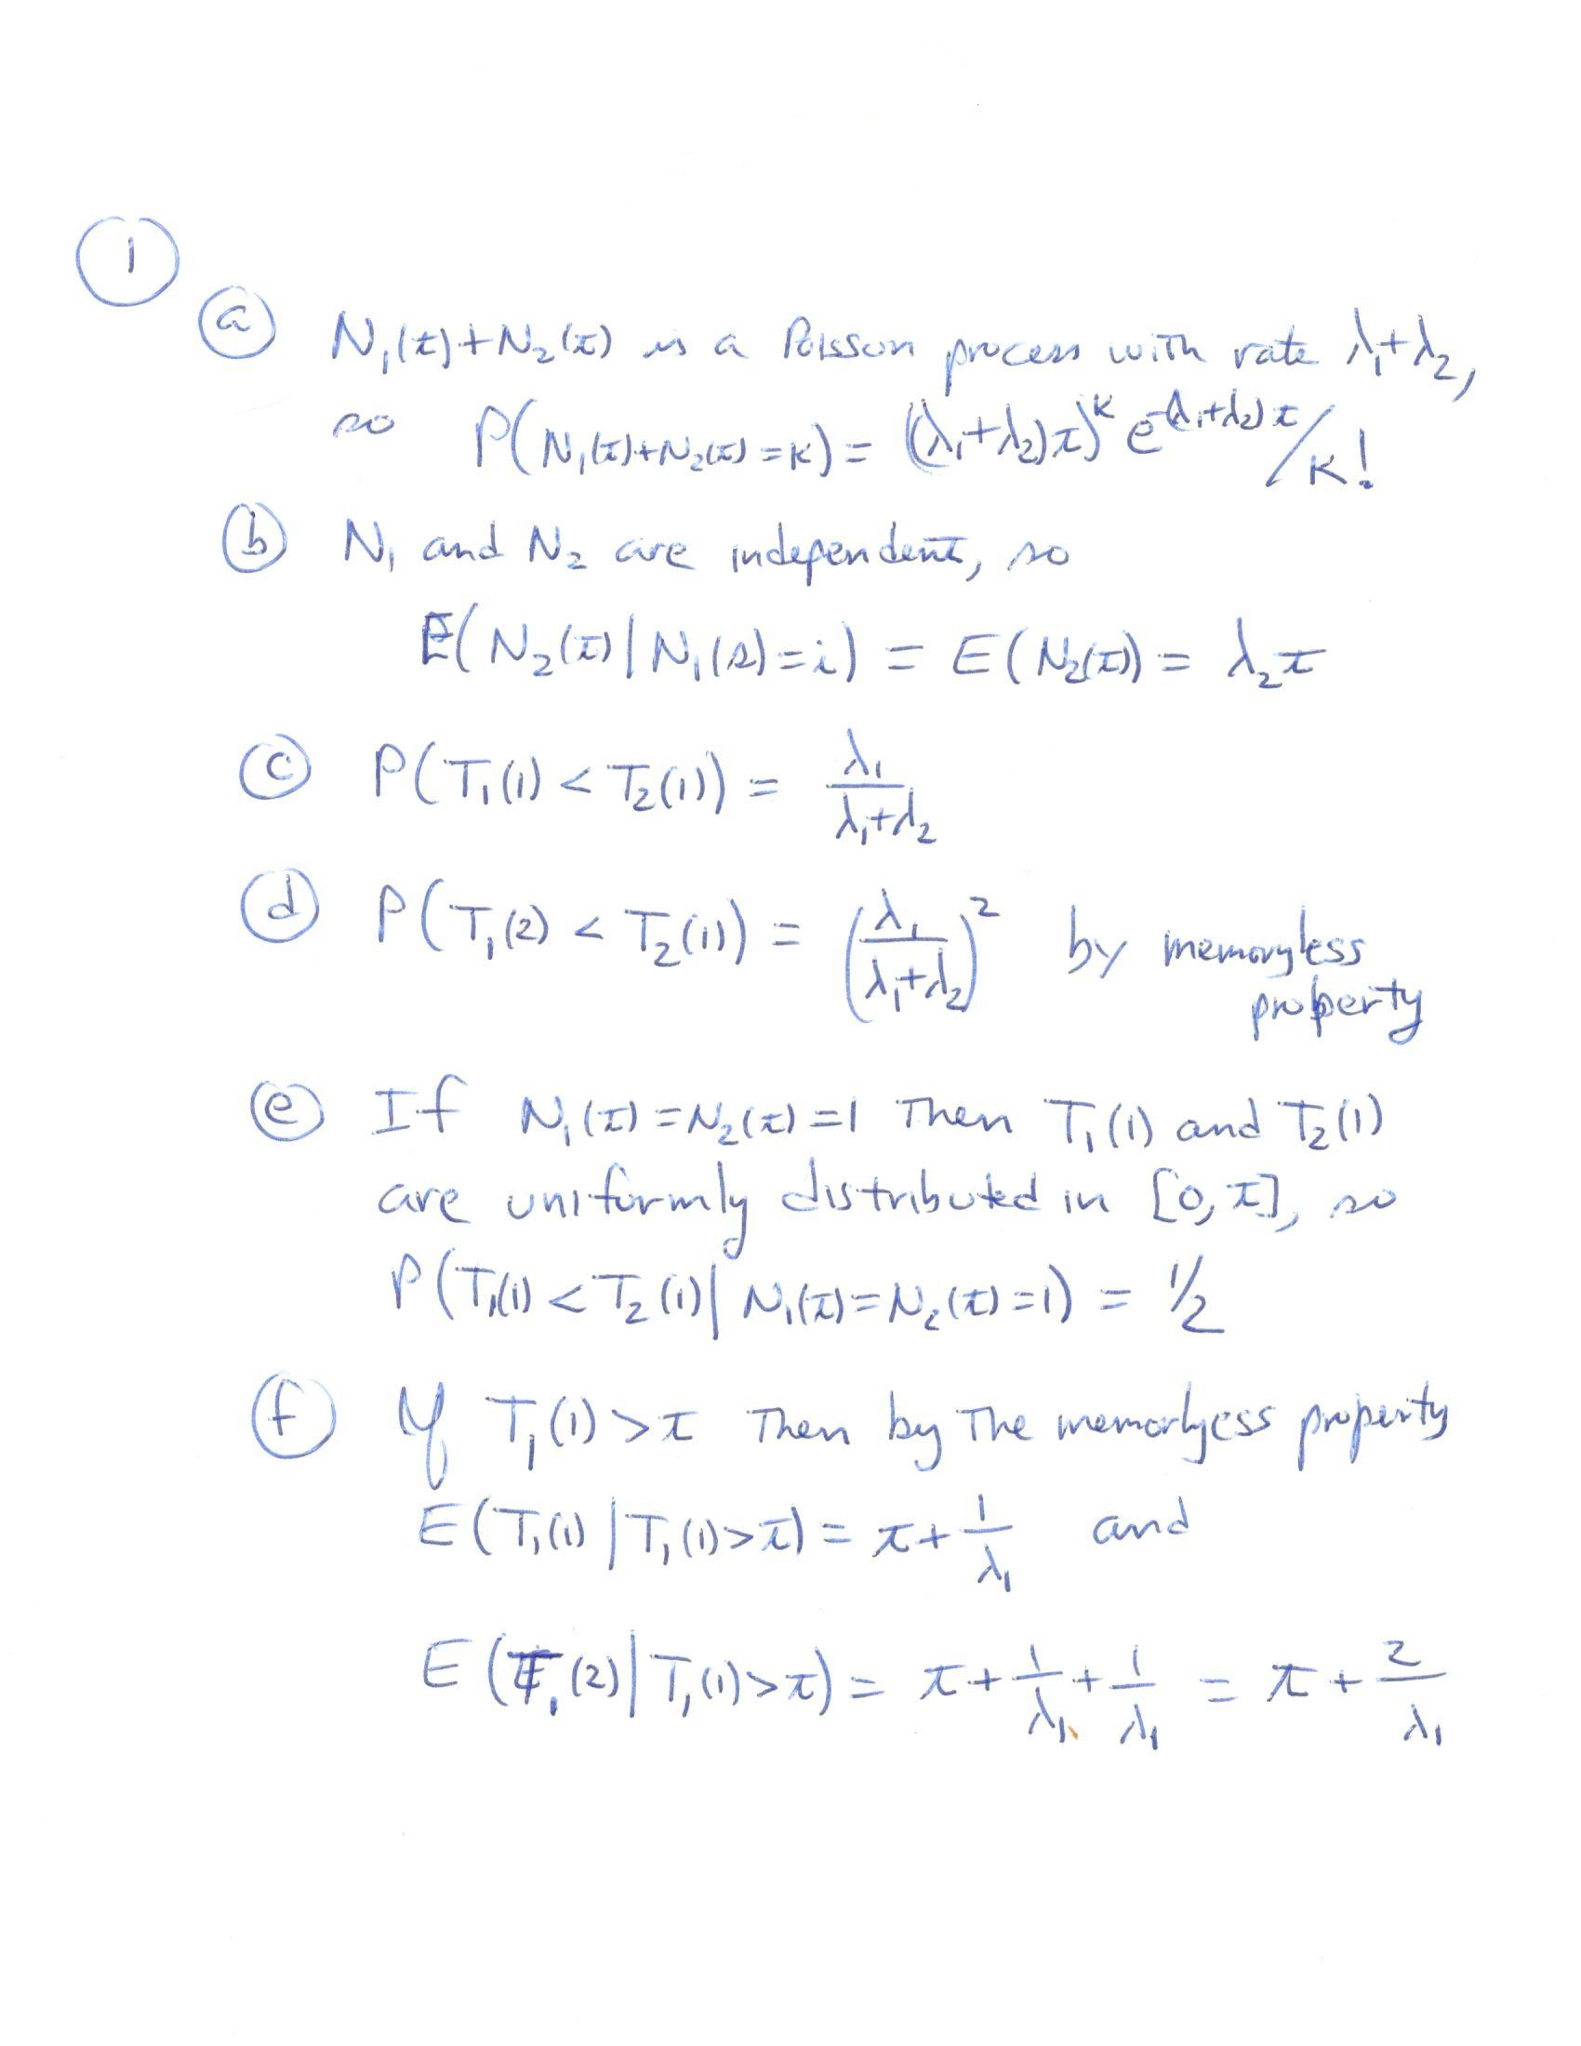 1
a N₁(t)+N₂(t) is a Poisson process with rate λ₁+λ₂,
so P(N₁(t)+N₂(t)=k) = ((λ₁+λ₂)t)^k e^-(λ₁+λ₂)t/k!
b N₁ and N₂ are independent, so
E(N₂(t)|N₁(s)=i) = E(N₂(t)) = λ₂t
c P(T₁(1) < T₂(1)) = λ₁/(λ₁+λ₂)
d P(T₁(2) < T₂(1)) = (λ₁/(λ₁+λ₂))² by memoryless
property
e If N₁(t)=N₂(t)=1 then T₁(1) and T₂(1)
are uniformly distributed in [0,t], so
P(T₁(1) < T₂(1)| N₁(t)=N₂(t)=1) = 1/2
f If T₁(1)>t then by the memorlyess property
E(T₁(1)|T₁(1)>t) = t+1/λ₁ and
E(T₁(2)|T₁(1)>t) = t+1/λ₁+1/λ₁ = t+2/λ₁